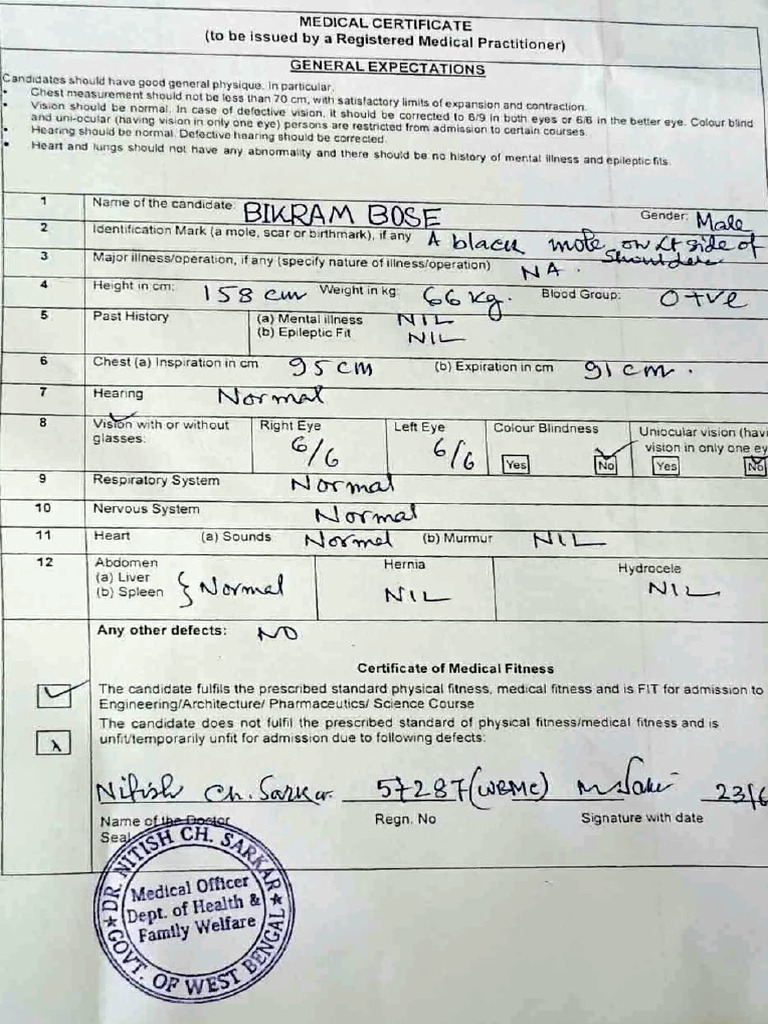 MEDICAL CERTIFICATE
(to be issued by a Registered Medical Practitioner)
GENERAL EXPECTATIONS
Candidates should have good general physique. In particular,
• Chest measurement should not be less than 70 cm, with satisfactory limits of expansion and contraction.
• Vision should be normal. In case of defective vision, it should be corrected to 6/9 in both eyes or 6/6 in the better eye. Colour blind
and uni-ocular (having vision in only one eye) persons are restricted from admission to certain courses.
• Hearing should be normal. Defective hearing should be corrected.
• Heart and lungs should not have any abnormality and there should be no history of mental illness and epileptic fits.
1 Name of the candidate: BIKRAM BOSE Gender: Male
2 Identification Mark (a mole, scar or birthmark), if any A black mole on Lt side of
Shoulder
3 Major illness/operation, if any (specify nature of illness/operation) NA.
4 Height in cm: 158 cm Weight in kg: 66 kg. Blood Group: O +ve
5 Past History (a) Mental illness NIL
(b) Epileptic Fit NIL
6 Chest (a) Inspiration in cm 95 cm (b) Expiration in cm 91 cm.
7 Hearing Normal
8 Vision with or without Right Eye Left Eye Colour Blindness Uniocular vision (havi
glasses: 6/6 6/6 Yes No vision in only one ey
Yes No
9 Respiratory System Normal
10 Nervous System Normal
11 Heart (a) Sounds Normal (b) Murmur NIL
12 Abdomen Hernia Hydrocele
(a) Liver
(b) Spleen } Normal NIL NIL
Any other defects: NO
Certificate of Medical Fitness
The candidate fulfils the prescribed standard physical fitness, medical fitness and is FIT for admission to
Engineering/Architecture/ Pharmaceutics/ Science Course
The candidate does not fulfil the prescribed standard of physical fitness/medical fitness and is
unfit/temporarily unfit for admission due to following defects:
Nitish Ch. Sarkar 57287 (WBMC) 23/6
Name of the Doctor Regn. No Signature with date
Seal
DR. NITISH CH. SARKAR
Medical Officer
Dept. of Health &
Family Welfare
GOVT. OF WEST BENGAL